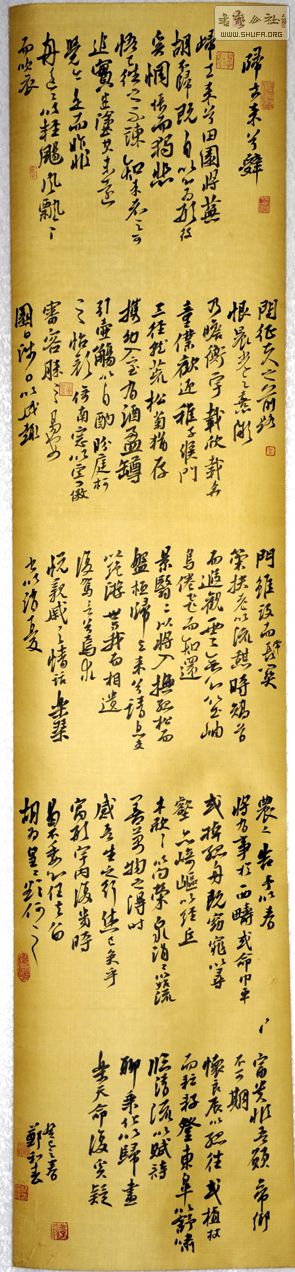 書藝公社
WWW.SHUFA.ORG
歸去來兮辭
歸去來兮田園將蕪
胡不歸既自以心為形役
奚惆悵而獨悲
悟已往之不諫知來者之可
追實迷途其未遠
覺今是而昨非
舟遙遙以輕颺風飄飄
而吹衣
問征夫以前路
恨晨光之熹微
乃瞻衡宇載欣載奔
童僕歡迎稚子候門
三徑就荒松菊猶存
攜幼入室有酒盈罇
引壺觴以自酌眄庭柯
以怡顏倚南窗以寄傲
審容膝之易安
園日涉以成趣
門雖設而常關
策扶老以流憩時矯首
而遐觀雲無心以出岫
鳥倦飛而知還
景翳翳以將入撫孤松而
盤桓歸去來兮請息交
以絕遊世與我而相遺
復駕言兮焉求
悅親戚之情話樂琴
書以消憂
農人告余以春
將有事於西疇或命巾車
或棹孤舟既窈窕以尋
壑亦崎嶇以經丘
木欣欣以向榮泉涓涓以流
善萬物之得時
感吾生之行休已矣乎
寓形宇內復幾時
曷不委心任去留
胡為遑遑欲何之
富貴非吾願帝鄉
不可期
懷良辰以孤往或植杖
而耘耔登東皋以舒嘯
臨清流以賦詩
聊乘化以歸盡
樂天命復奚疑